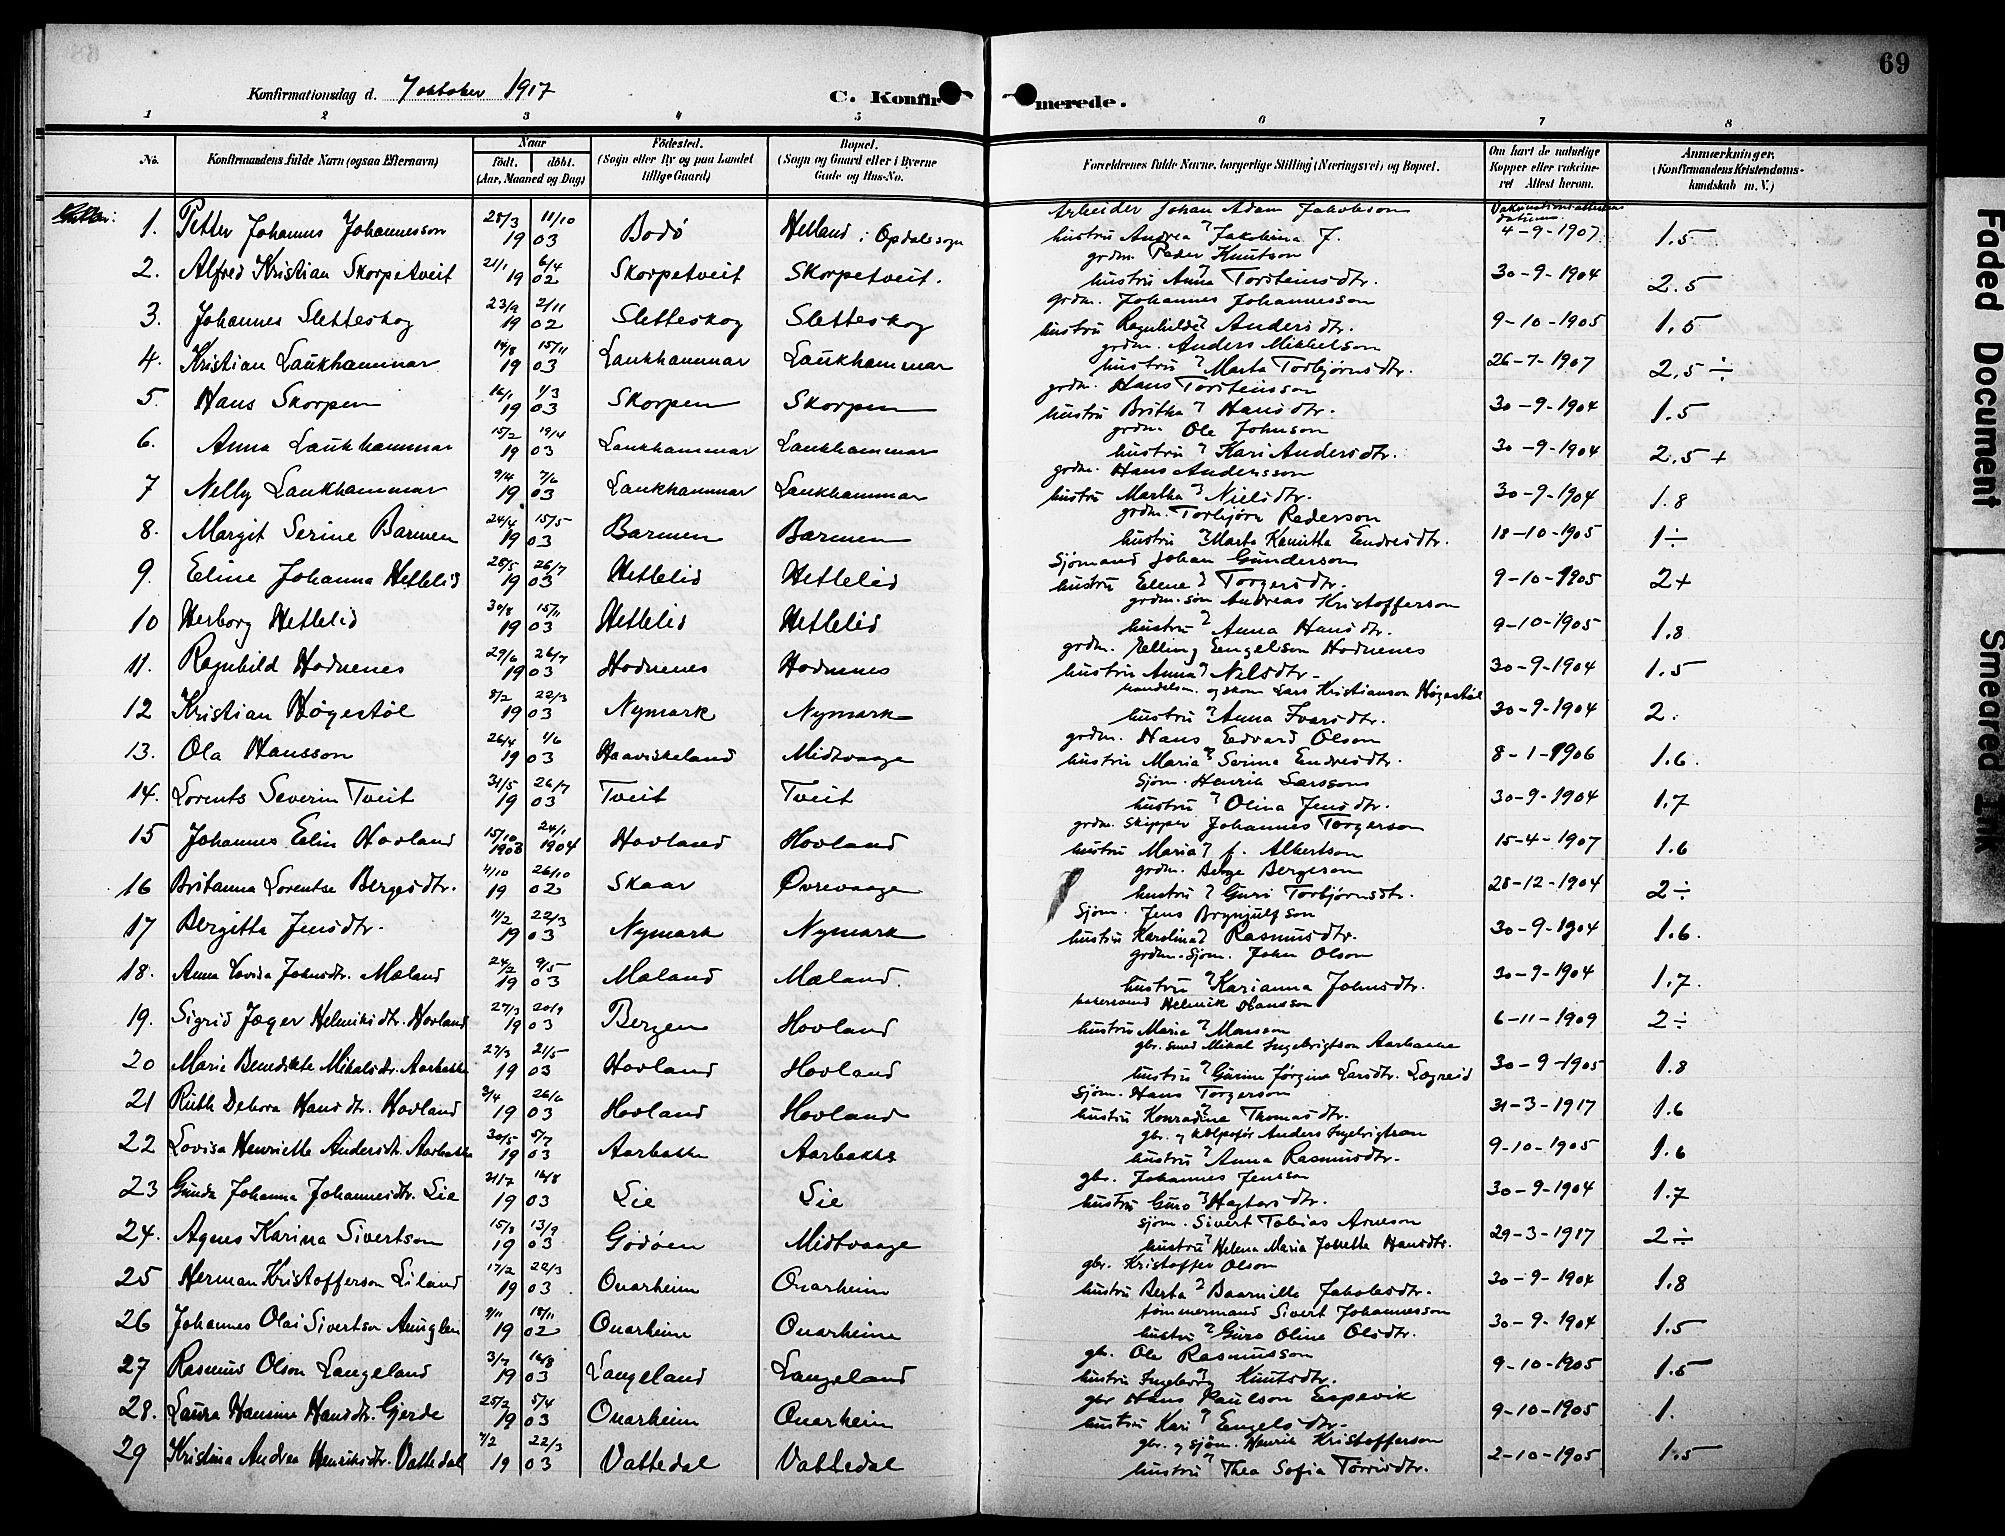 69
Konfirmationsdag d. 7 oktober 1917
C. Konfir merede.
1 2 3 4 5 6 7 8
No. Konfirmandens fulde Navn (ogsaa Efternavn) Naar født. døbt. (Aar, Maaned og Dag) Fødested. (Sogn eller By og paa Landet tillige Gaard) Bopæl. (Sogn og Gaard eller i Byerne Gade og Hus-No. Forældrenes fulde Navne, borgerlige Stilling (Næringsvei) og Bopæl. Om havt de naturlige Kopper eller vakcineret Attest herom. Anmærkninger. (Konfirmandens Kristendomskundskab m. V.)
Arbeider Johan Adam Jakobson
1. Petter Johannes Johannesson 28/3 1903 11/10 Bodø Helland i Opdalssogn hustru Andrea Jakobina J. 4-9-1907 1.5
grdm. Peder Knutson
2. Alfred Kristian Skorpetveit 21/1 1902 6/4 Skorpetveit Skorpetveit. hustru Anna Torsteinsdtr. 30-9-1904 2.5
grdm. Johannes Johannesson
3. Johannes Sletteskog 23/9 1902 2/11 Sletteskog Sletteskog hustru Ragnhilda Andersdtr. 9-10-1905 1.5
grdm. Anders Mikkelson
4. Kristian Laukhammar 14/8 1903 15/11 Laukhammar Laukhammar hustru Marta Torbjørnsdtr. 26-7-1907 2.5 ÷
grdm. Hans Torsteinsson
5. Hans Skorpen 16/1 1903 1/3 Skorpen Skorpen hustru Britha Hansdtr. 30-9-1904 1.5
grdm. Ole Johnson
6. Anna Laukhammar 15/2 1903 19/4 Laukhammar Laukhammar hustru Kari Andersdtr. 30-9-1904 2.5+
grdm. Hans Andersson
7 Nelly Laukhammar 9/4 1903 7/6 Laukhammar Laukhammar hustru Martha Nielsdtr. 30-9-1904 1.8
grdm. Torbjørn Pederson
8. Margit Serine Barmen 24/4 1903 15/5 Barmen Barmen hustru Marta Kamitta Endresdtr. 18-10-1905 1÷
Sjømand Johan Gunderson
9. Eline Johanna Hetlelid 28/5 1903 26/7 Hetlelid Hetlelid hustru Elene Torgersdtr. 9-10-1905 2+
grdm. søn Andreas Kristofferson
10 Herborg Hetlelid 30/8 1903 15/11 Hetlelid Hetlelid hustru Anna Hansdtr. 9-10-1905 1.8
grdm. Elling Engelson Hodnenes
11. Ragnhild Hodnenes 29/6 1903 26/7 Hodnenes Hodnenes hustru Anna Nilsdtr. 30-9-1904 1.5
handelsm. og skom Lars Kristianson Høgestøl
12 Kristian Høgestøl 8/2 1903 22/3 Nymark Nymark hustru Anna Ivarsdtr. 30-9-1904 2.
grdm. Hans Edvard Olson
13. Ola Hansson 26/4 1903 1/6 Haaviskeland Midtvaage hustru Maria Serina Endresdtr. 8-1-1906 1.6.
Sjøm. Henrik Larsson
14. Lorents Severin Tveit 31/5 1903 26/7 Tveit Tveit hustru Olina Jensdtr. 30-9-1904 1.7
grdm. skipper Johannes Torgerson
15 Johannes Elin Hovland 15/10 1903 24/1 1904 Hovland Hovland hustru Maria f. Albertson 15-4-1907 1.6
grdm. Berge Bergeson
16 Britanna Lorentse Bergesdtr. 4/10 1902 26/10 Skaar Øvrevaage hustru Guri Torbjørnsdtr. 28-12-1904 2÷
Sjøm. Jens Brynjulfson
17 Bergitta Jensdtr. 11/2 1903 22/3 Nymark Nymark hustru Karolina Rasmusdtr. 30-9-1904 1.6.
grdm.-Sjøm. John Olson
18. Anna Lovisa Johnsdtr. Mæland 24/2 1903 9/5 Mæland Mæland. hustru Karianna Johnsdtr. 30-9-1904 1.7.
Helmik Hansson
19. Sigrid Jæger Helmiksdtr. Hovland 27/3 1903 20/9 Bergen Hovland hustru Maria Monson 6-11-1909 2÷
gbr. smed Mikal Ingebrigtson Aarbakke
20 Marie Benedikte Mikalsdtr. Aarbakke 27/3 1903 21/5 Hovland Hovland hustru Gurine Jørgine Larsdtr. Lægreid 30-9-1905 1.8
Sjøm. Hans Torgerson
21 Ruth Debora Hansdtr. Hovland 3/4 1903 26/6 Hovland Hovland hustru Konradine Thomasdtr. 31-3-1917 1.6
gbr. og Anders Ingebrigtson
22 Lovisa Henriette Andersdtr. Aarbakke 30/5 1903 5/7 Aarbakke Aarbakke hustru Anna Rasmusdtr. 9-10-1905 1.6
gbr. Johannes Jensson
23 Gunda Johanna Johannesdtr. Lie 21/7 1903 16/8 Lie Lie hustru Guro Hagtorsdtr. 30-9-1904 1.7
sjøm. Sivert Tobias Arneson
24. Agnes Karina Sivertson 15/8 1903 13/9 Godøen Midtvaage hustru Helena Maria Johette Hansdtr. 29-3-1917 2÷
gbr. Kristoffer Olson
25 Herman Kristofferson Liland 17/2 1903 22/3 Onarheim Onarheim hustru Berta Baarnille Jakobsdtr. 30-9-1904 1.8
tømmermand Sivert Johannesson
26 Johannes Olai Sivertson Anuglen 9/11 1902 18/11 Onarheim Onarheim hustru Guro Oline Olsdtr. 30-9-1904 1.5
gb. Ole Rasmusson
27 Rasmus Olson Langeland 3/7 1903 16/8 Langeland Langeland hustru Ingeborg Knutsdtr. 9-10-1905 1.5
gbr Hans Paulson Espevik
28. Laura Hansine Hansdtr. Gjerde 25/2 1903 5/4 Onarheim Onarheim hustru Kari Engelsdtr. 9-10-1905 1.
gbr. og sjøm. Henrik Kristofferson
29 Kristina Andrea Henriksdtr. Vattedal 7/2 1903 22/3 Vattedal Vattedal hustru Thea Sofia Torrisdtr. 2-10-1905 1.5
Faded Document
Smeared Ink